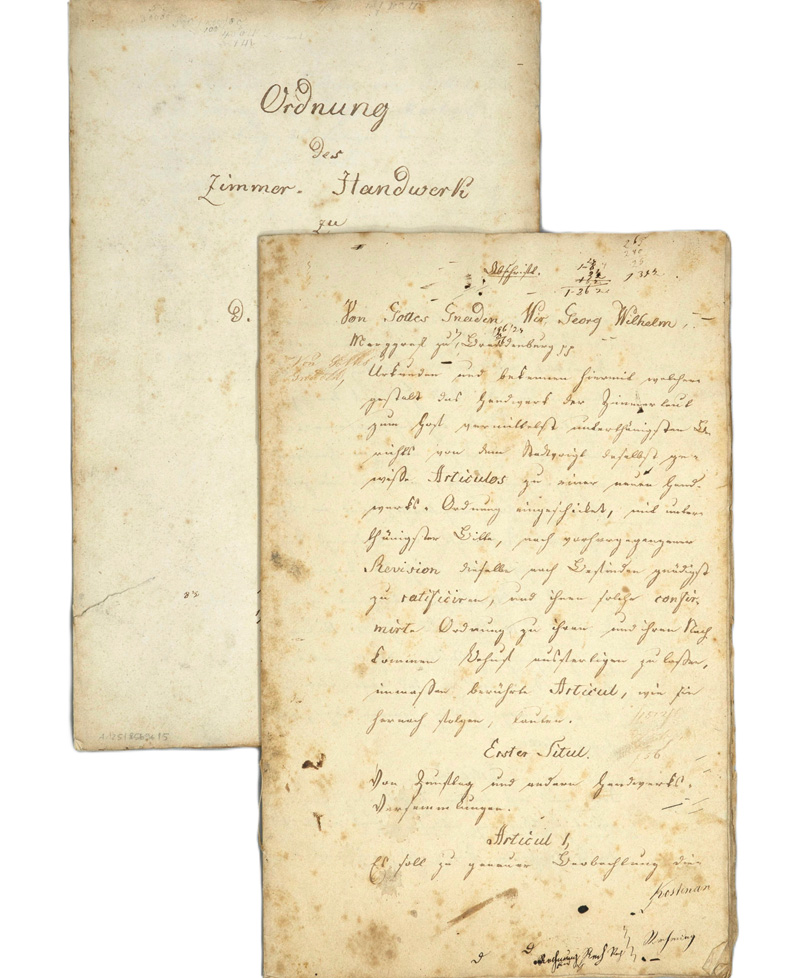 Ordnung
des
Zimmer-Handwerk
zu
D.
Abschrift.
1352
Von Gottes Gnaden, Wir Georg Wilhelm,
Marggraf zu Brandenburg
Urkunden und bekennen hiermit, welcher
gestalt das Handwerk der Zimmerleut
zum Hof vermittelst unterthänigsten Be
richts von dem Stadtvoigt daselbst ge-
wisse Articulos zu einer neuen Hand-
werks-Ordnung eingeschicket, mit unter-
thänigster Bitte, nach vorhergegangener
Revision dieselbe nach Befinden gnädigst
zu ratificiren, und ihnen solche confir-
mirte Ordnung zu ihren und ihren Nach
kommen Behuf ausfertigen zu lassen,
inmassen berührte Articul, wie sie
hernach folgen, lauten.
Erster Titul.
Von Zunfttag und andern Handwerks-
Versammlungen.
Articul 1,
Es soll zu genauer Beobachtung die